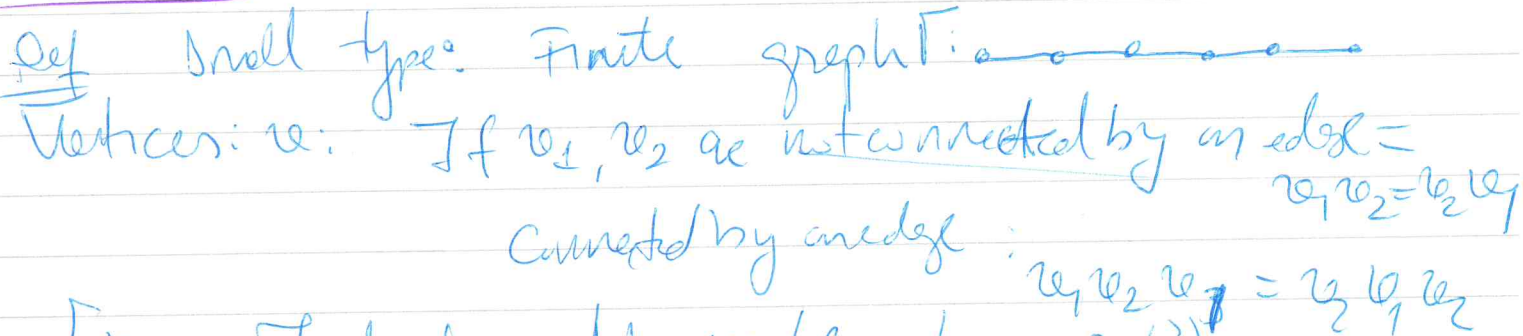 Def Small type: Finite graph Γ:
Vertices: v: If v₁, v₂ are not connected by an edge =
v₁v₂ = v₂v₁
Connected by an edge :
v₁v₂v₁ = v₂v₁v₂